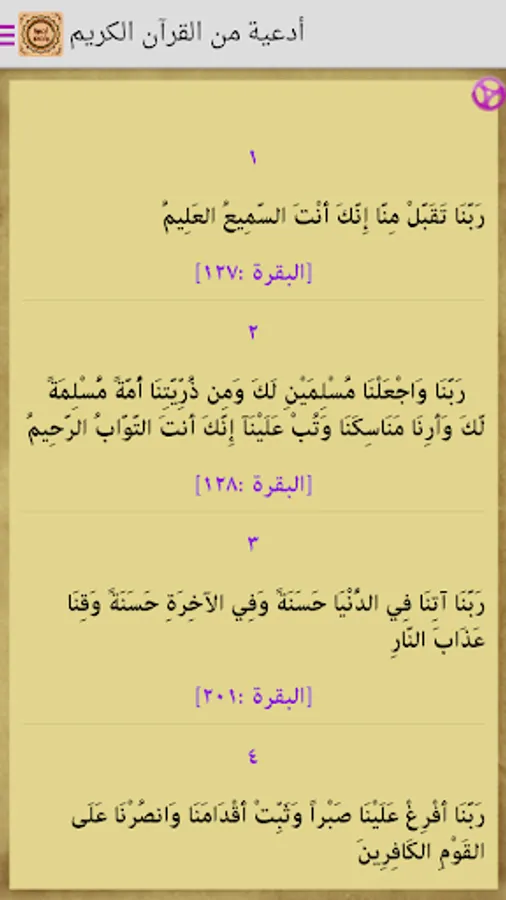 أدعية من القرآن الكريم
١
رَبَّنَا تَقَبَّلْ مِنَّا إِنَّكَ أَنْتَ السَّمِيعُ العَلِيمُ
[البقرة :١٢٧]
٢
رَبَّنَا وَاجْعَلْنَا مُسْلِمَيْنِ لَكَ وَمِن ذُرِّيَّتِنَا أُمَّةً مُّسْلِمَةً
لَّكَ وَأَرِنَا مَنَاسِكَنَا وَتُبْ عَلَيْنَآ إِنَّكَ أَنتَ التَّوَّابُ الرَّحِيمُ
[البقرة :١٢٨]
٣
رَبَّنَا آتِنَا فِي الدُّنْيَا حَسَنَةً وَفِي الآخِرَةِ حَسَنَةً وَقِنَا
عَذَابَ النَّارِ
[البقرة :٢٠١]
٤
رَبَّنَا أَفْرِغْ عَلَيْنَا صَبْراً وَثَبِّتْ أَقْدَامَنَا وَانصُرْنَا عَلَى
القَوْمِ الكَافِرِينَ